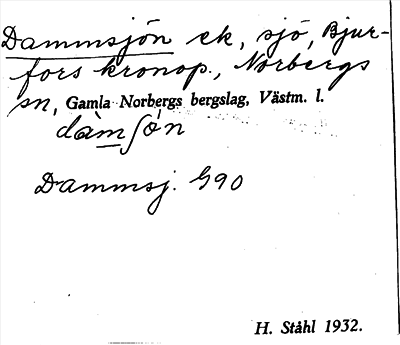 Dammsjön ek, sjö, Bjur-
fors kronop., Norbergs
sn, Gamla Norbergs bergslag, Västm. l.
dàmʃớn
Dammsj. G90
H. Ståhl 1932.